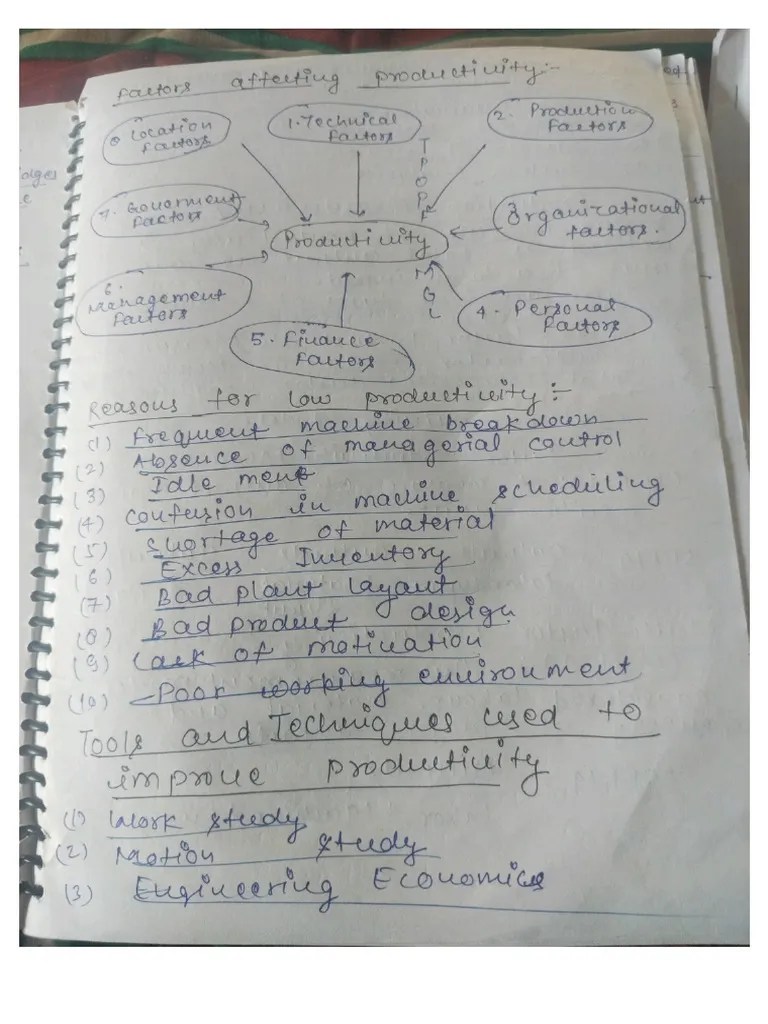 Factors affecting productivity:-
8 Location
factors
1. Technical
factors
2. Production
factors
T
P
O
P
7. Government
factors
3
Organizational
factors.
Productivity
6.
Management
factors
M
G
L
4. Personal
factors
5. Finance
factors
Reasons for low productivity:-
(1) frequent machine breakdown
(2) Absence of managerial control
(3) Idle ment
(4) confusion in machine scheduling
(5) shortage of material
(6) Excess Inventory
(7) Bad plant layout
(8) Bad product design
(9) Lack of motivation
(10) Poor working environment
Tools and Techniques used to
improve productivity
(1) Work study
(2) Motion study
(3) Engineering Economics